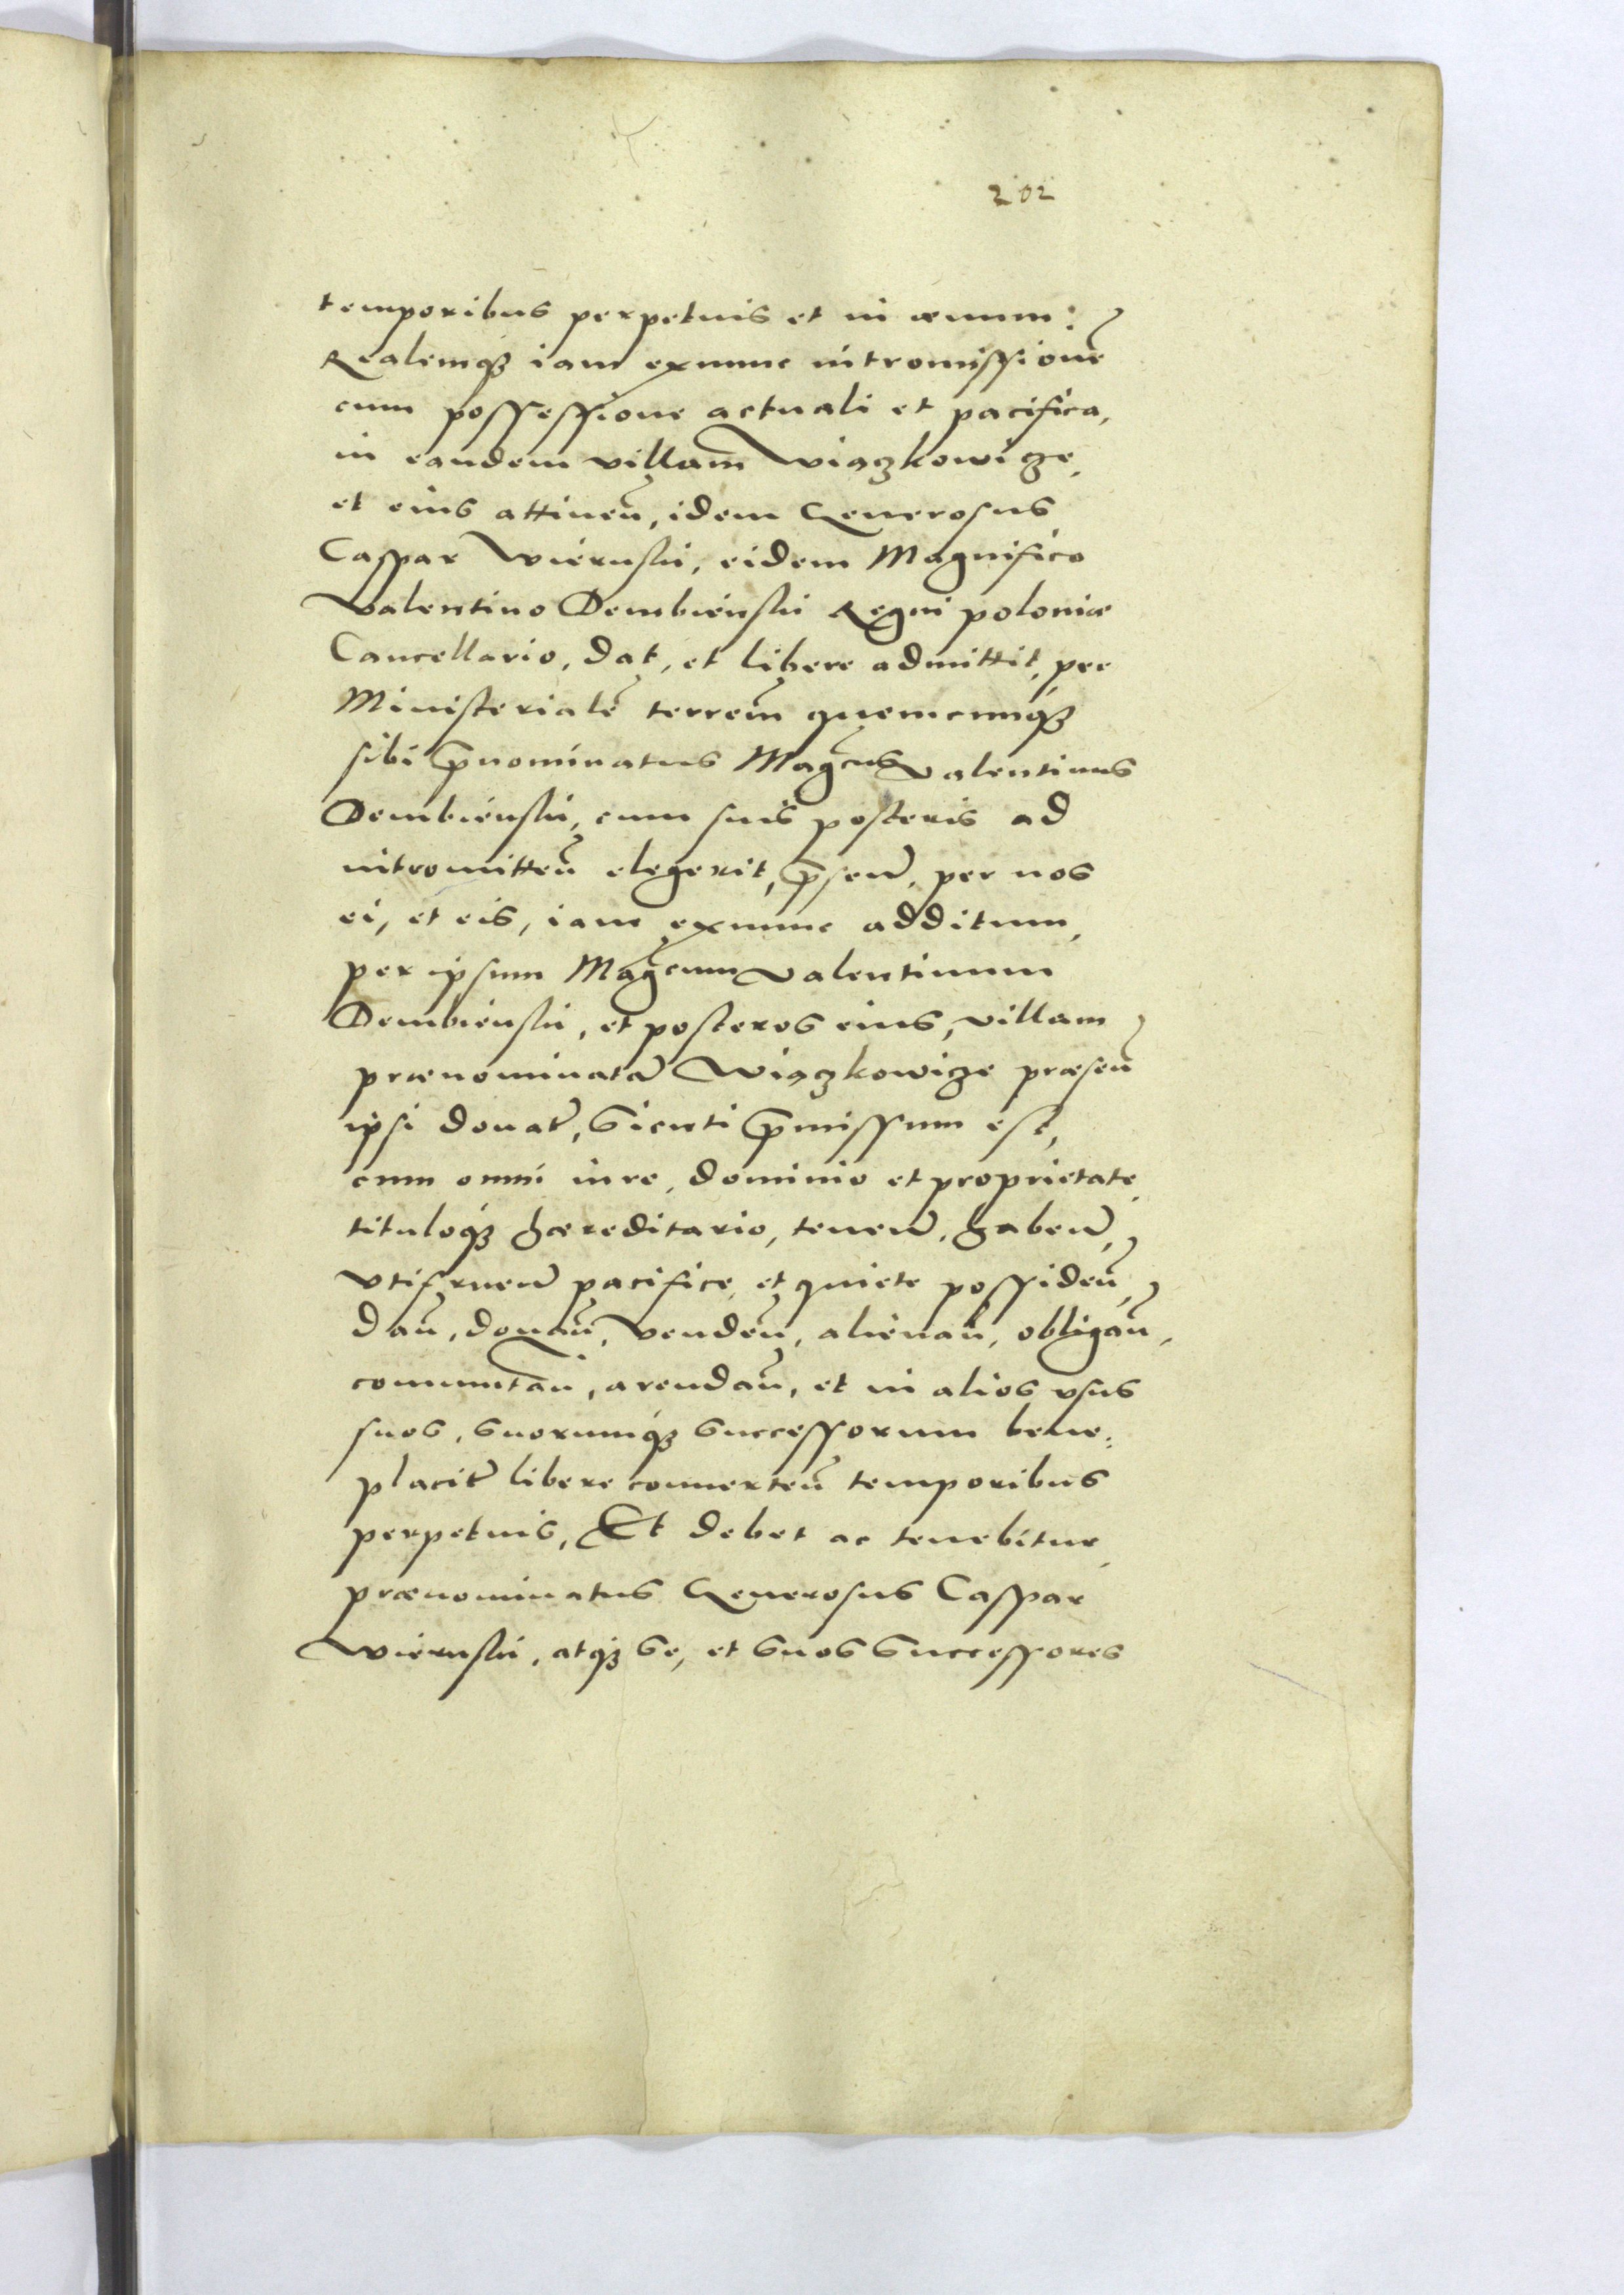 202
temporibus perpetuis et in æuum:
Realemq₃ iam exnunc intromissionē
cum possessione actuali et pacifica,
in eandem villam Wiączkowicze,
et eius attineñ, idem Generosus
Caspar Wiernski, eidem Magnifico
Valentino Dembienski Regni poloniæ
Cancellario, dat, et libere admittit, per
Ministerialē terreñ quemcumq₃
sibi p̄nominatus Mag̃cus Valentinus
Dembienski, cum suis posteris ad
intromitteñ elegerit, p̄señ, per nos
ei, et eis, iam exnunc additum,
per ipsum Mag̃cum Valentinum
Dembienski, et posteros eius, villam
prænominatā Wiączkowicze præseñ
ipsi donat̃, sicuti p̄missum est,
cum omni iure, dominio et proprietate,
tituloq₃ hæreditario, teneñ, habeñ,
vtifrueñ pacifice, et quiete possideñ,
dañ, donañ, vendeñ, alienañ, obligañ,
commutañ, arendañ, et in alios vsus
suos, suorumq₃ successorum bene:
placit̃ libere conuerteñ temporibus
perpetuis, Et debet ac tenebitur
prænominatus Generosus Caspar
Wiernski, atq₃ se, et suos successores